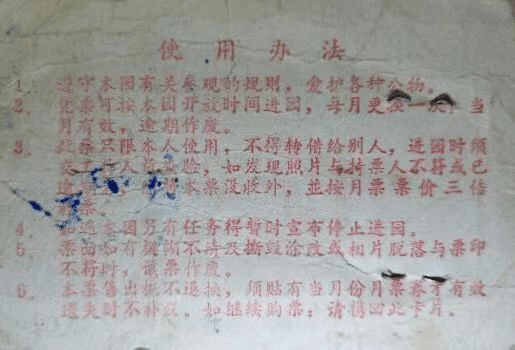 使用办法
1. 遵守本园有关参观的规则，爱护各种公物。
2. 凭票可按本园开放时间进园，每月更换一次，当
月有效，逾期作废。
3. 此票只限本人使用，不得转借给别人，进园时须
交工作人员查验，如发现照片与持票人不符或已
本票没收外，並按月票票价三倍
票。
4. 如遇本园另有任务得暂时宣布停止进园。
5. 票面如有模糊不清及撕毁涂改或相片脱落与票印
不符时，该票作废。
6. 本票售出概不退换，须贴有当月份月票券才有效
遗失时不补发。如继续购票；请携回此卡片。